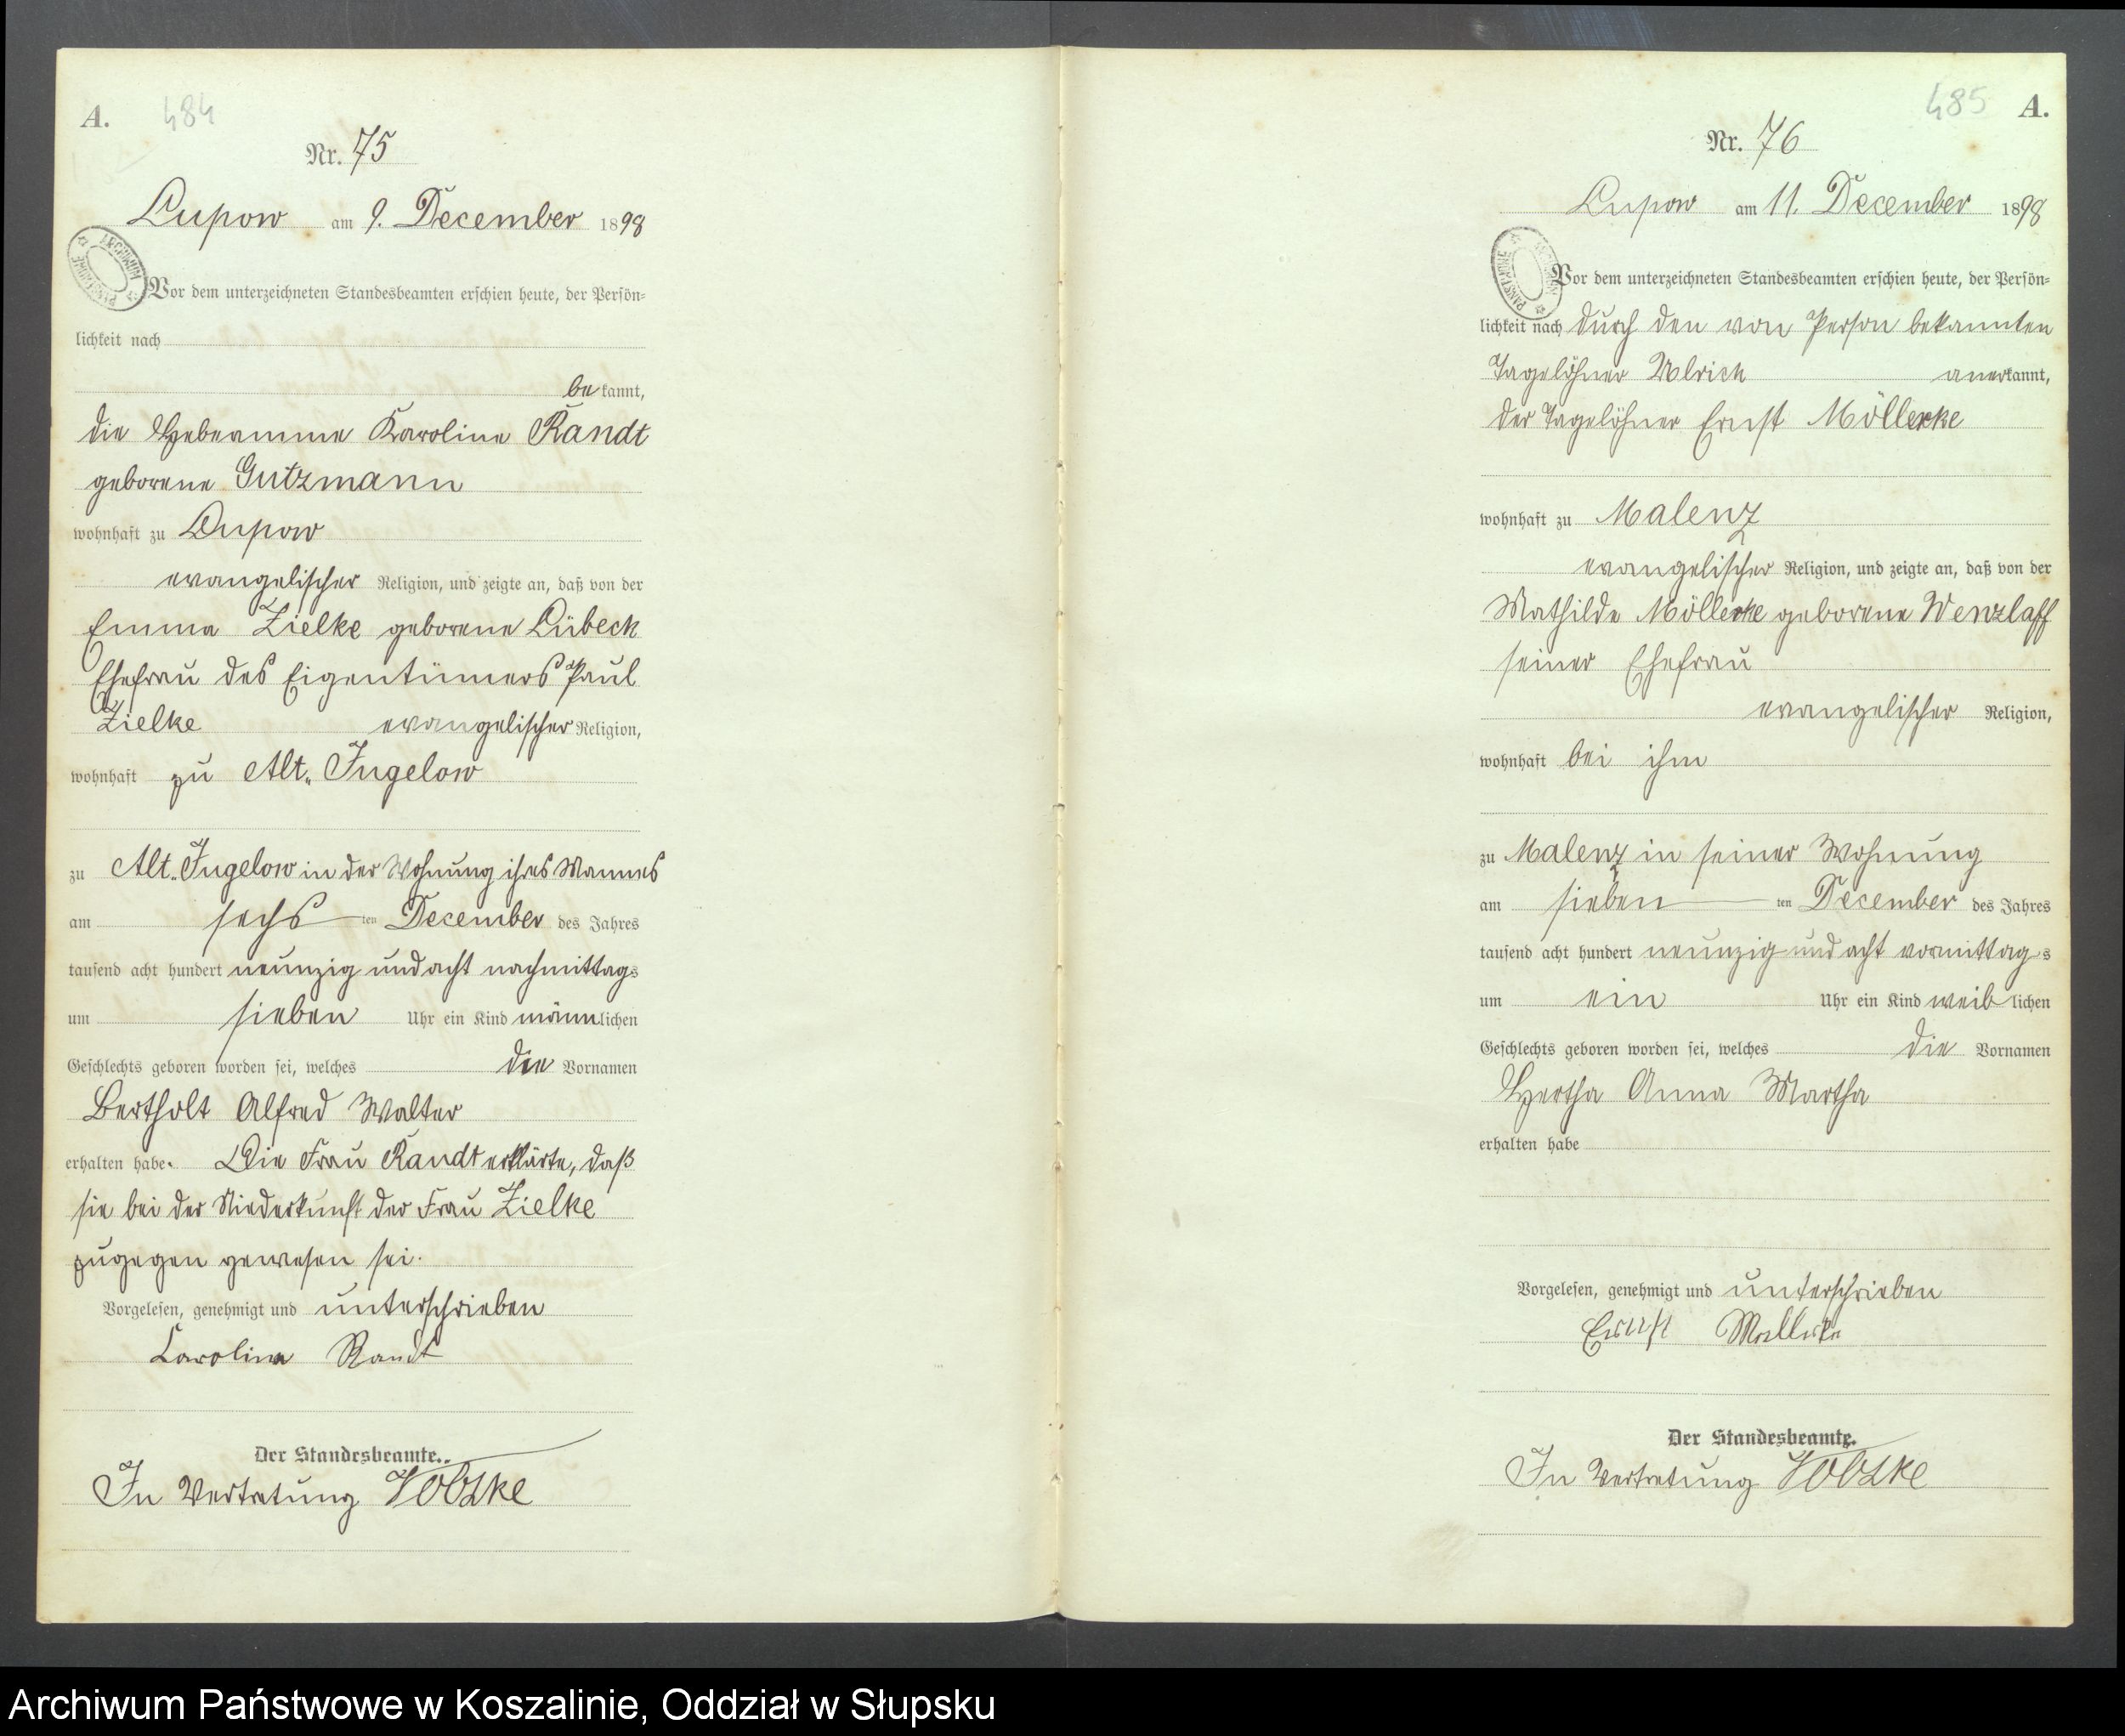 A. 484
Nr. 75
Lupow am 9. December 1898
Vor dem unterzeichneten Standesbeamten erschien heute, der Persön-
lichkeit nach
be kannt,
die Hebeamme Karoline Randt
geborene Gutzmann
wohnhaft zu Lupow
evangelischer Religion, und zeigte an, daß von der
Emma Zielke geborene Lübeck
Ehefrau des Eigentümers Paul
Zielke evangelischer Religion,
wohnhaft zu Alt-Jugelow
zu Alt-Jugelow in der Wohnung ihres Mannes
am sechs ten December des Jahres
tausend acht hundert neunzig und acht nachmittags
um sieben Uhr ein Kind männlichen
Geschlechts geboren worden sei, welches die Vornamen
Bertholt Alfred Walter
erhalten habe. Die Frau Randt erklärte, daß
sie bei der Niederkunft der Frau Zielke
zugegen gewesen sei.
Vorgelesen, genehmigt und unterschrieben
Karoline Randt
Der Standesbeamte.
In Vertretung
485 A.
Nr. 76
Lupow am 11. December 1898
Vor dem unterzeichneten Standesbeamten erschien heute, der Persön-
lichkeit nach durch den von Person bekannten
Tagelöhner Ulrich anerkannt,
der Tagelöhner Ernst Möllerke
wohnhaft zu Malenz
evangelischer Religion, und zeigte an, daß von der
Mathilde Möllerke geborene Wenzlaff
seiner Ehefrau
evangelischer Religion,
wohnhaft bei ihm
zu Malenz in seiner Wohnung
am sieben ten December des Jahres
tausend acht hundert neunzig und acht vormittags
um ein Uhr ein Kind weiblichen
Geschlechts geboren worden sei, welches die Vornamen
Hertha Anna Martha
erhalten habe
Vorgelesen, genehmigt und unterschrieben
Ernst
Der Standesbeamte.
In Vertretung
Archiwum Państwowe w Koszalinie, Oddział w Słupsku